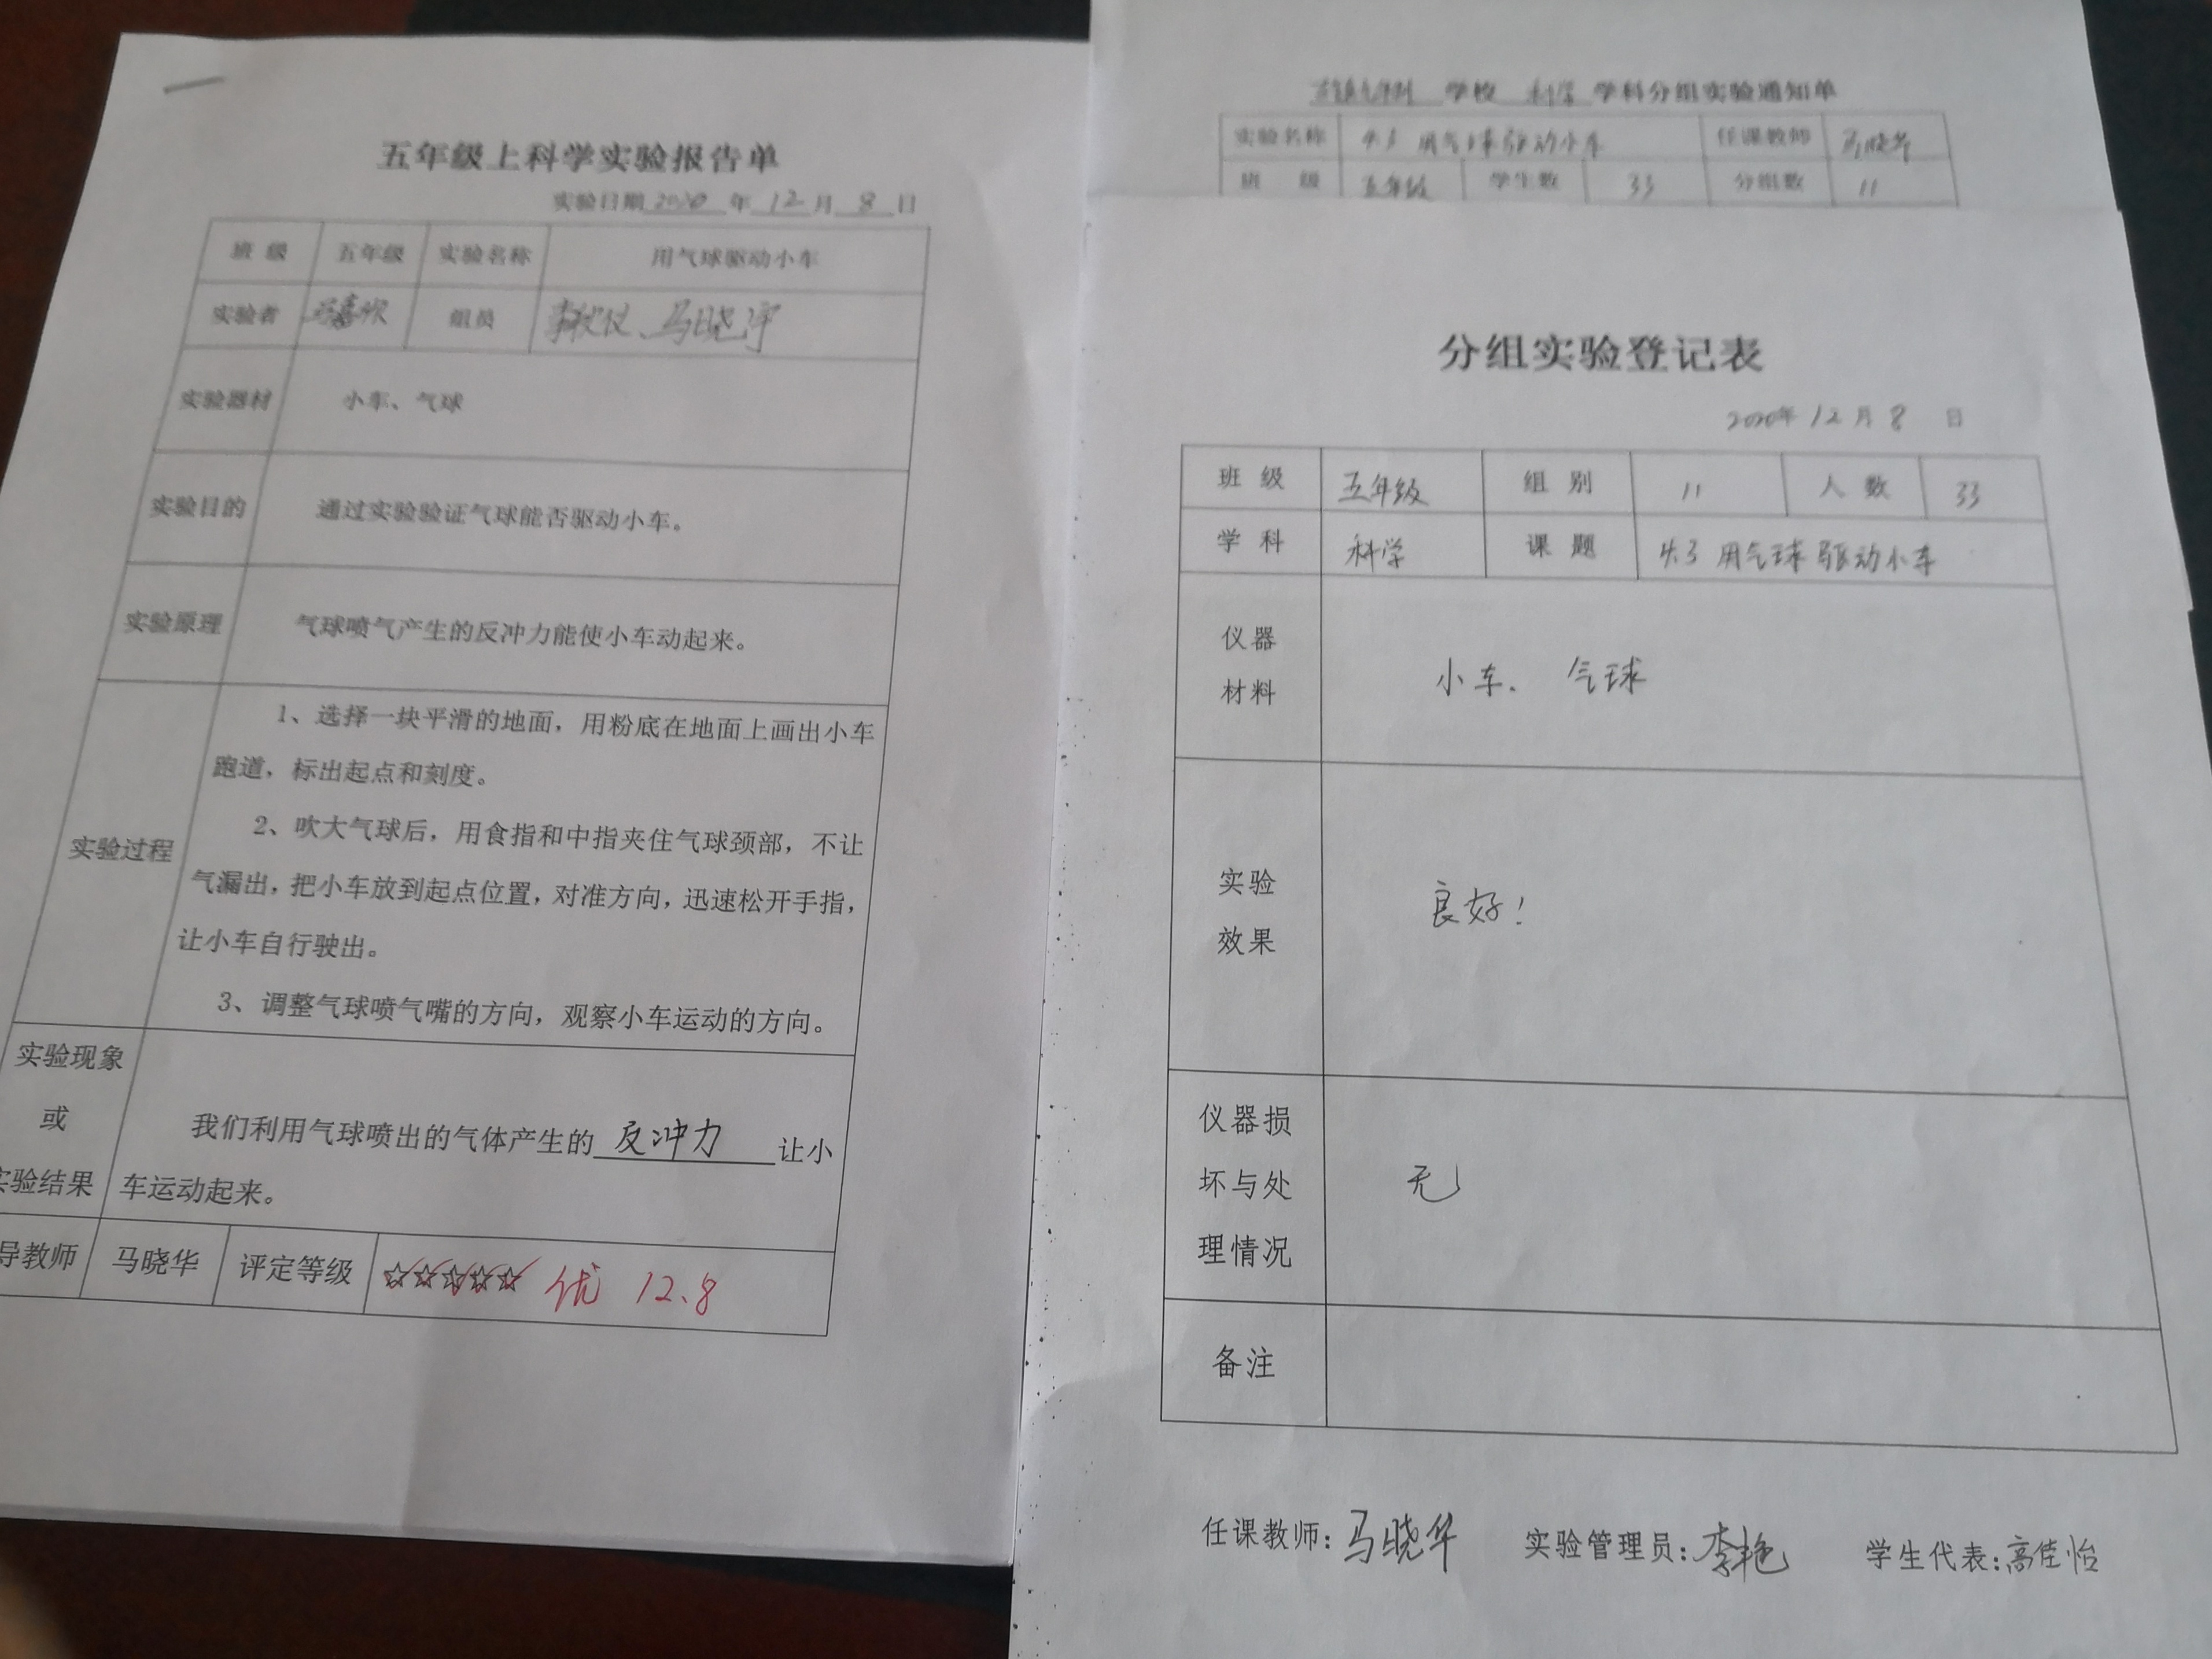 五年级上科学实验报告单
实验日期 2020 年 12 月 8 日
班 级 五年级 实验名称 用气球驱动小车
实验者 组员 马晓宇
实验器材 小车、气球
实验目的 通过实验验证气球能否驱动小车。
实验原理 气球喷气产生的反冲力能使小车动起来。
实验过程
1、选择一块平滑的地面，用粉底在地面上画出小车
跑道，标出起点和刻度。
2、吹大气球后，用食指和中指夹住气球颈部，不让
气漏出，把小车放到起点位置，对准方向，迅速松开手指，
让小车自行驶出。
3、调整气球喷气嘴的方向，观察小车运动的方向。
实验现象
或
实验结果
我们利用气球喷出的气体产生的 反冲力 让小
车运动起来。
导教师 马晓华 评定等级 ☆☆☆☆☆ 优 12.8
学校 科学 学科分组实验通知单
实验名称 4.3 用气球驱动小车 任课教师 马晓华
班 级 五年级 学生数 33 分组数 11
分组实验登记表
2020年 12 月 8 日
班 级 五年级 组 别 11 人 数 33
学 科 科学 课 题 4.3 用气球驱动小车
仪器
材料
小车、 气球
实验
效果
良好！
仪器损
坏与处
理情况
无
备注
任课教师：马晓华 实验管理员：李艳 学生代表：高佳怡